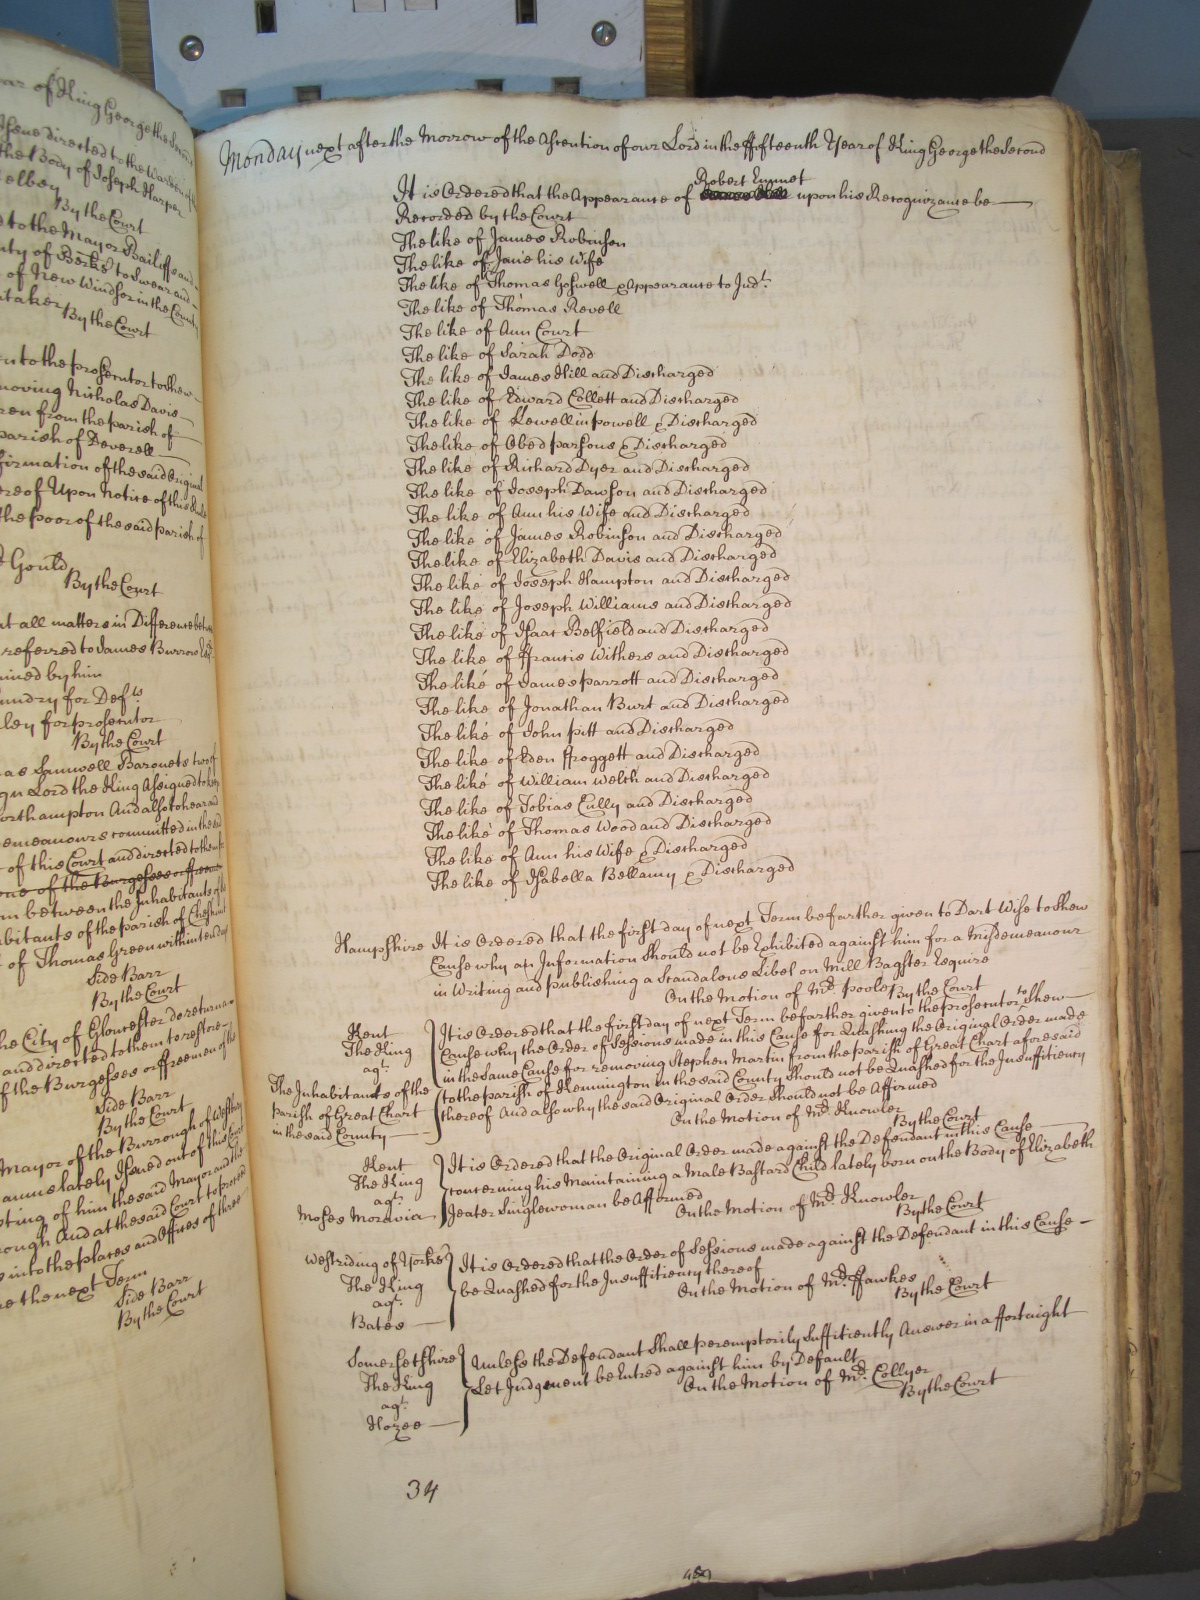 ar of King George the Second
Issue directed to the Warden of
the Body of Joseph Harper
elbey
By the Court
e to the Mayor Bailiffs and
nty of Berks to Swear and
of New Windsor in the County
taker
By the Court
en to the prosecutor to Shew
moving Nicholas Davis
ren from the parish of
parish of Deverell
firmation of the said Original
ereof Upon Notice of this Rule
the poor of the said parish of
Gould
By the Court
at all matters in Difference betw
referred to James Burrow Esqr
mined by him
undry for Defts
ley for prosecutor
By the Court
as Samwell Baronets two of
gn Lord the King Assigned to keep
orthampton And also to hear and
emeanours committed in the said
of this Court and directed to them
one of the Burgesses or freemen
m between the Inhabitants of the
abitants of the parish of
of Thomas Green within ten days
Side Barr
By the Court
he City of Gloucester do return
and directed to them to restore
f the Burgesses or freemen of the
Side Barr
By the Court
Mayor of the Burrough of
amus lately Issued out of this Court
ting of him the said Mayor and the
ough And at the said Court to proceed
s into the places and Offices of three
re the next Term
Side Barr
By the Court
Monday next after the Morrow of the Ascention of our Lord in the ffifteenth Year of King George the Second
Robert Emmet
It is Ordered that the Appearance of upon his Recognizance be
Recorded by the Court
The like of James Robinson
The like of Jane his Wife
The like of Thomas Goswell & Appearance to Judt.
The like of Thomas Revell
The like of Ann Court
The like of Sarah Dodd
The like of James Hill and Discharged
The like of Edward Collett and Discharged
The like of Lewellin powell & Discharged
The like of Obed parsons & Discharged
The like of Richard Dyer and Discharged
The like of Joseph Dawson and Discharged
The like of Ann his Wife and Discharged
The like of James Robinson and Discharged
The like of Elizabeth Davis and Discharged
The like of Joseph Hampton and Discharged
The like of Joseph Williams and Discharged
The like of Isaac Belfield and Discharged
The like of ffrancis Withers and Discharged
The like of James parrott and Discharged
The like of Jonathan Burt and Discharged
The like of John pitt and Discharged
The like of Eden ffroggett and Discharged
The like of William Welch and Discharged
The like of Tobias Cully and Discharged
The like of Thomas Wood and Discharged
The like of Ann his Wife & Discharged
The like of Isabella Bellamy & Discharged
Hampshire It is Ordered that the first day of next Term be farther given to Dart Wise to Shew
Cause why an Information Should not be Exhibited against him for a Misdemeanour
in Writing and publishing a Scandalous Libel on Mill Bagster Esquire
On the Motion of Mr. poole
By the Court
Kent
The King
agt.
The Inhabitants of the
parish of Great Chart
in the said County
It is Ordered that the first day of next Term be farther given to the prosecutor to Shew
Cause why the Order of Sessions made in this Cause for Quashing the Original Order made
in the Same Cause for removing Stephen Martin from the parish of Great Chart aforesaid
to the parish of Kennington in the said County Should not be Quashed for the Insufficiency
thereof And also why the said Original Order Should not be Affirmed
On the Motion of Mr. Knowler
By the Court
Kent
The King
agt.
Moses Moravia
It is Ordered that the Original Order made against the Defendant in this Cause
concerning his Maintaining a Male Bastard Child lately born on the Body of Elizabeth
Jeater Singlewoman be Affirmed
On the Motion of Mr. Knowler
By the Court
Westriding of Yorke
The King
agt.
Bates
It is Ordered that the Order of Sessions made against the Defendant in this Cause
be Quashed for the Insufficiency thereof
On the Motion of Mr. ffawkes
By the Court
Somersetshire
The King
agt.
Hozee
Unless the Defendant Shall peremptorily Sufficiently Answer in a ffortnight
Let Judgment be Entred against him by Default
On the Motion of Mr. Collyer
By the Court
34